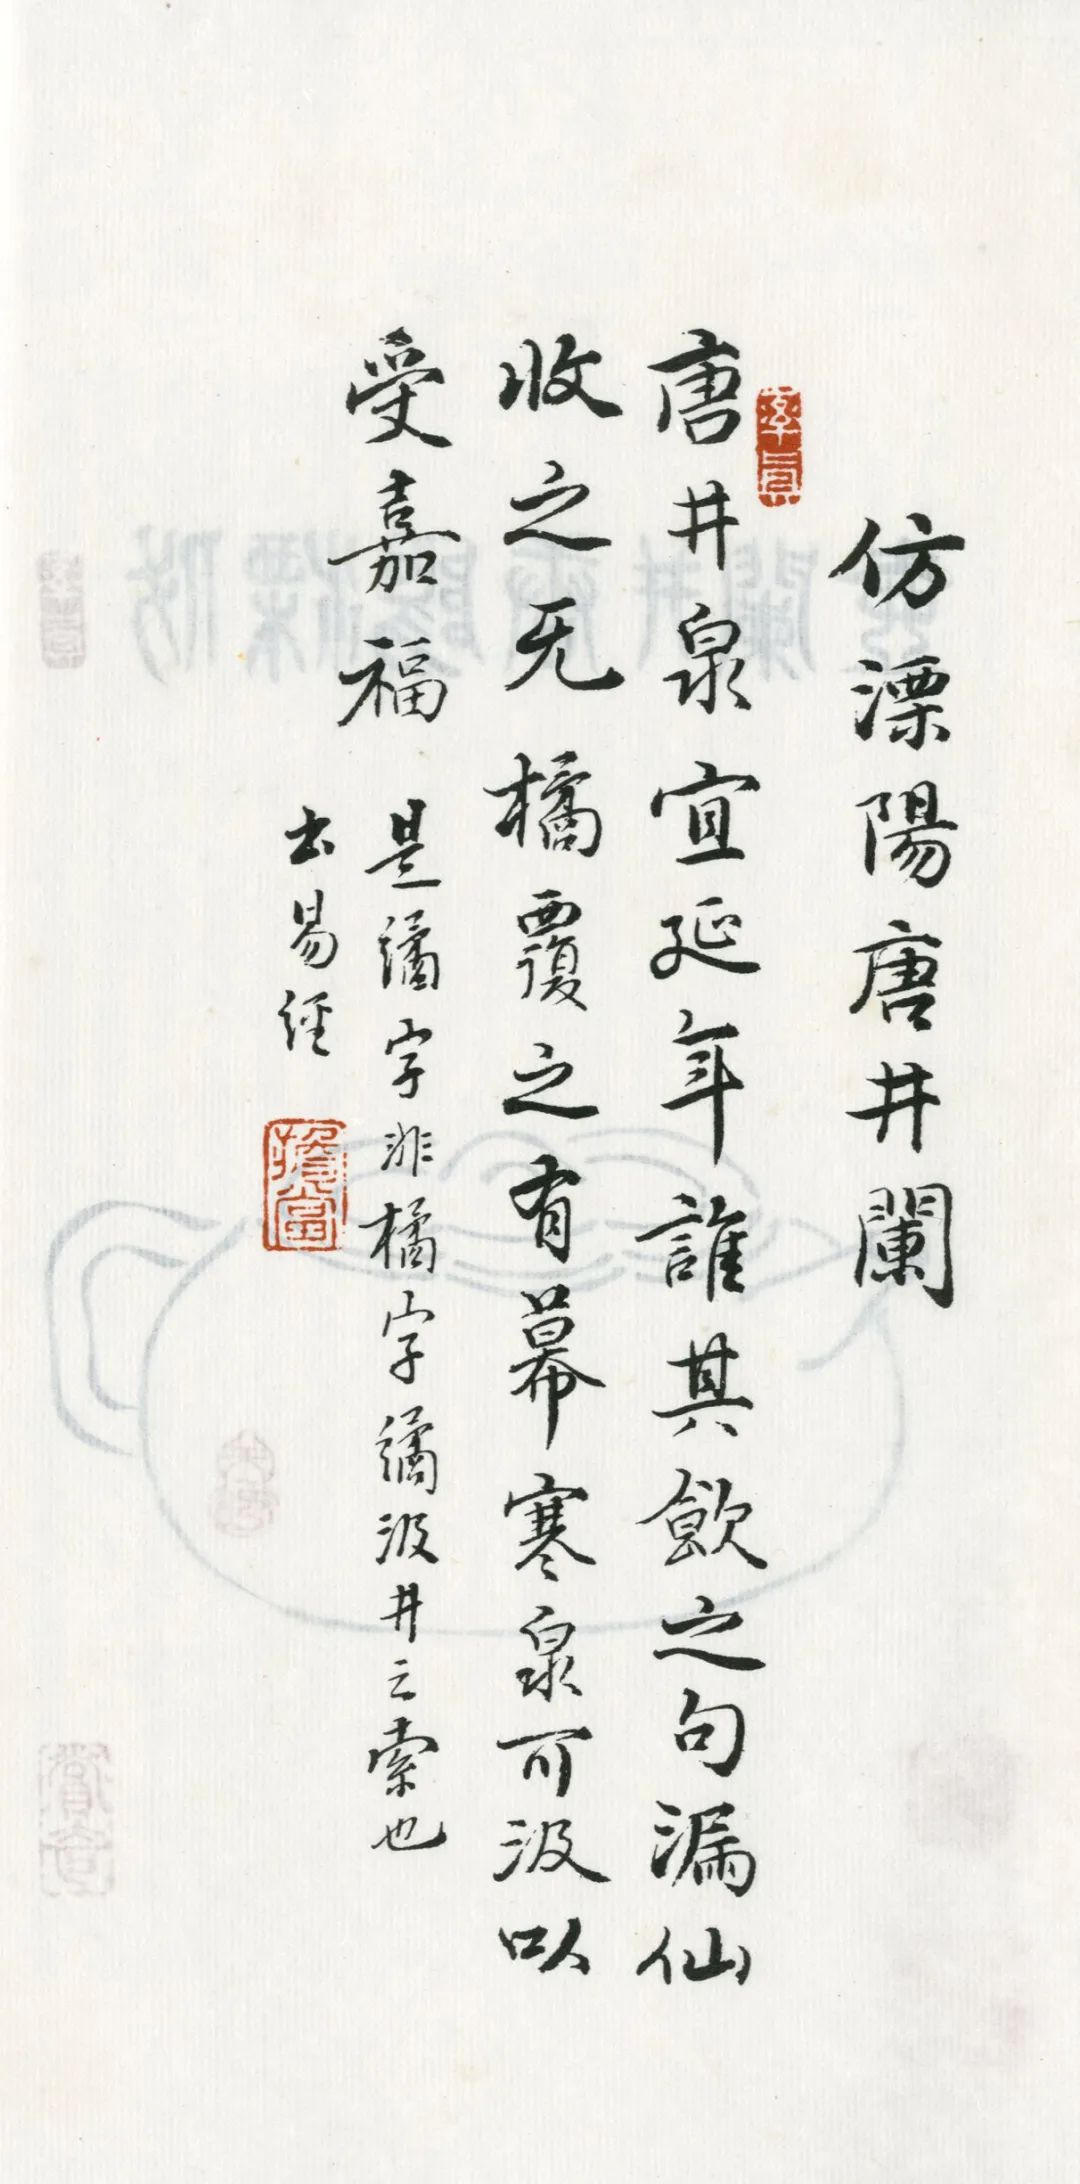 仿溧陽唐井闌
唐井泉宜延年誰其飲之句漏仙
收之无橘覆之有幕寒泉可汲以
受嘉福
是繘字非橘字繘汲井之索也
出易經